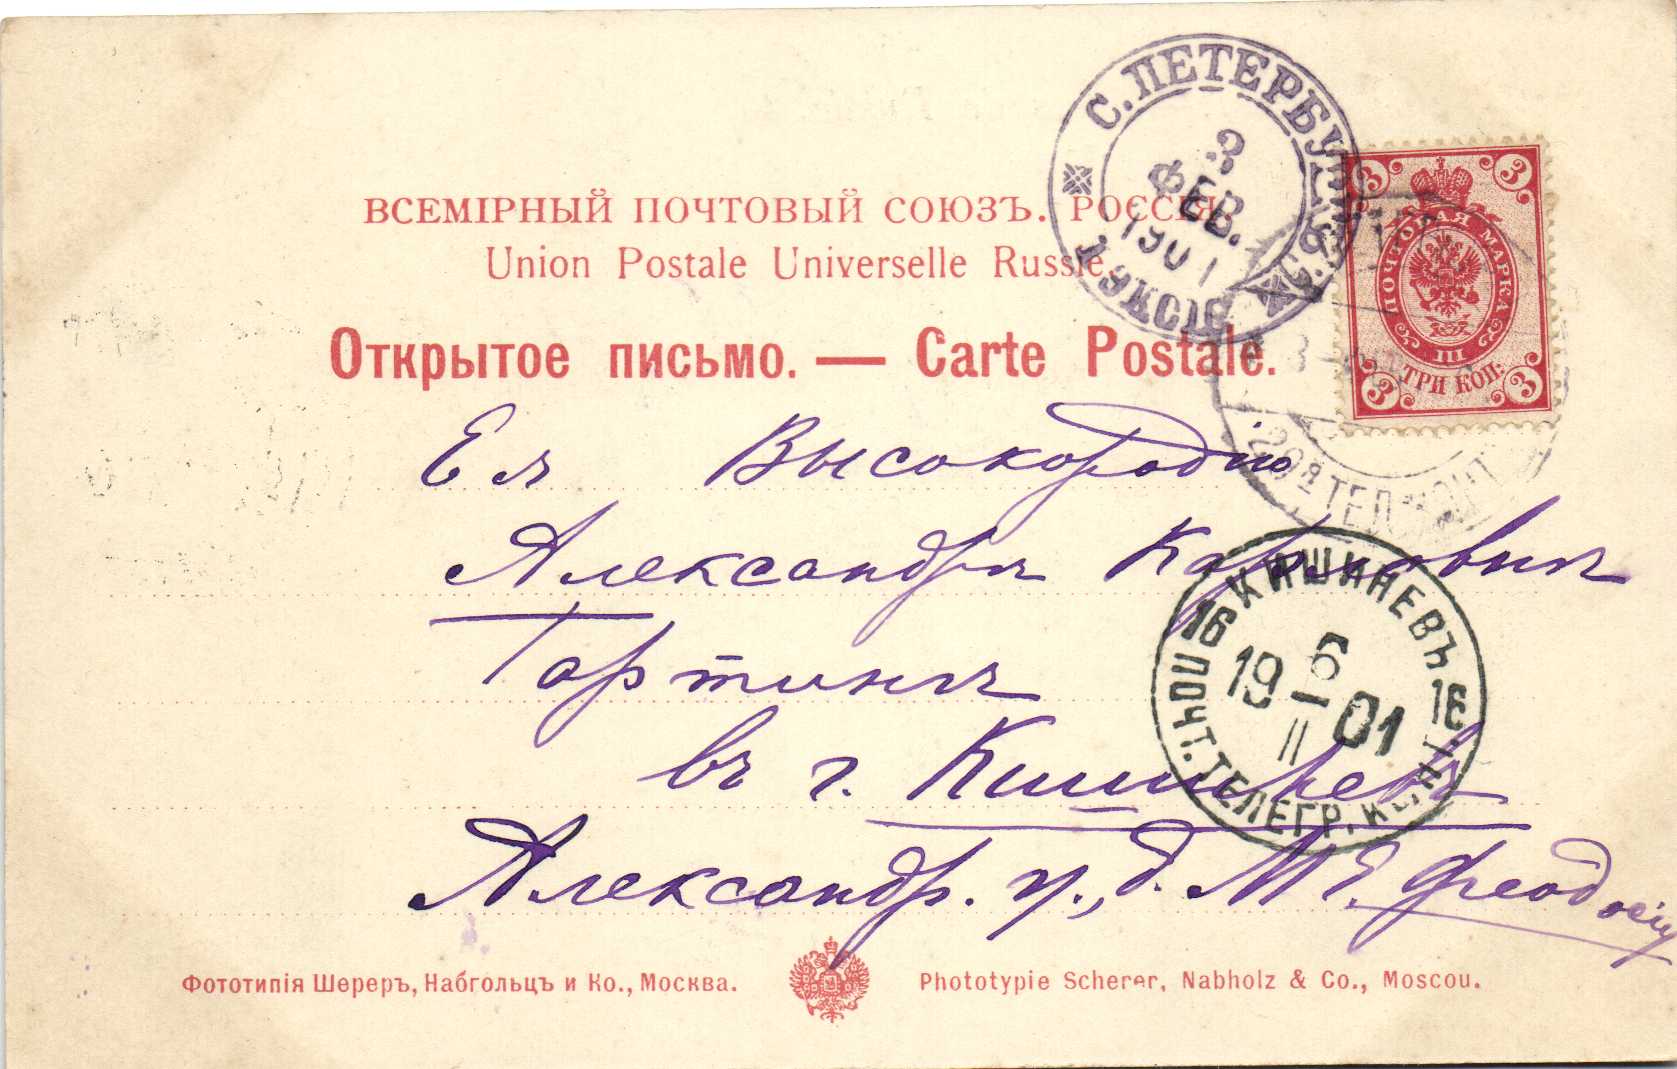 ВСЕМІРНЫЙ ПОЧТОВЫЙ СОЮЗЪ. РОССІЯ
Union Postale Universelle Russie.
Открытое письмо. — Carte Postale.
С. ПЕТЕРБУРГЪ
3
ФЕВ.
1901
1 ЭКСП
ПОЧТОВАЯ МАРКА
3 3
III
ТРИ КОП.
3 3
Ея Высокородію
Александра Карлович
Гартинг
въ г. Кишиневъ
Александр. у., д.
КИШИНЕВЪ
16 16
6
19 — 01
II
ПОЧТ. ТЕЛЕГР. К
Фототипія Шереръ, Набгольцъ и Ко., Москва.
Phototypie Scherer, Nabholz & Co., Moscou.